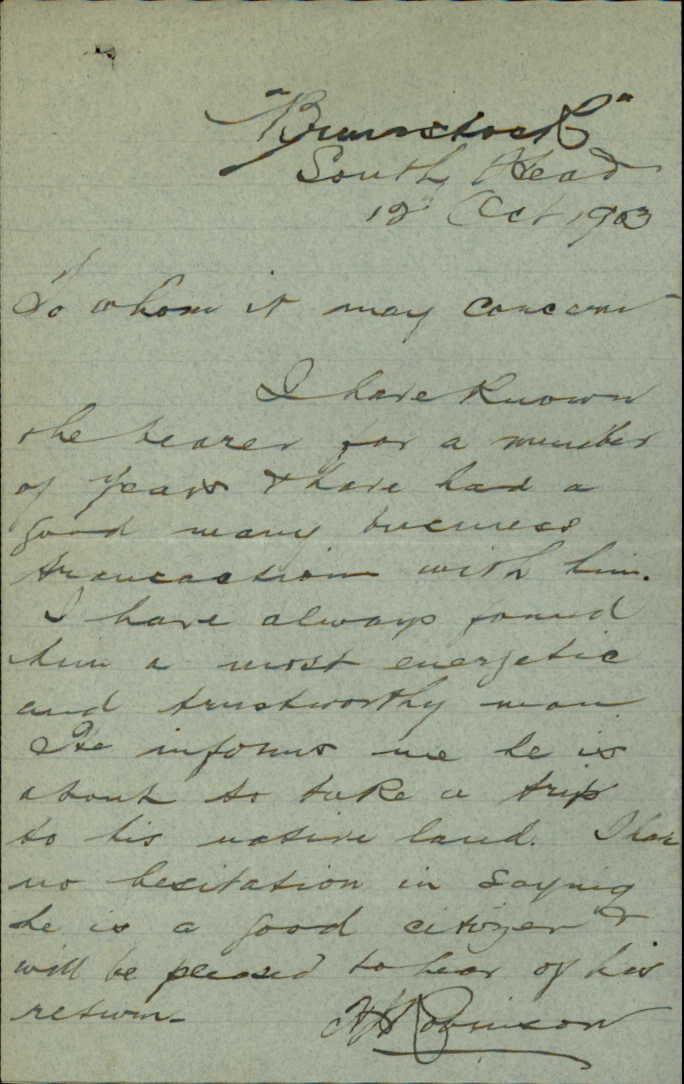 "Brunstock"
South Head
12" Oct 1903
To whom it may concern
I have known
the bearer for a number
of years & have had a
good many business
transactions with him.
I have always found
him a most energetic
and trustworthy man
He informs me he is
about to take a trip
to his native land. I have
no hesitation in saying
he is a good citizen &
will be pleased to hear of his
return.
Robinson